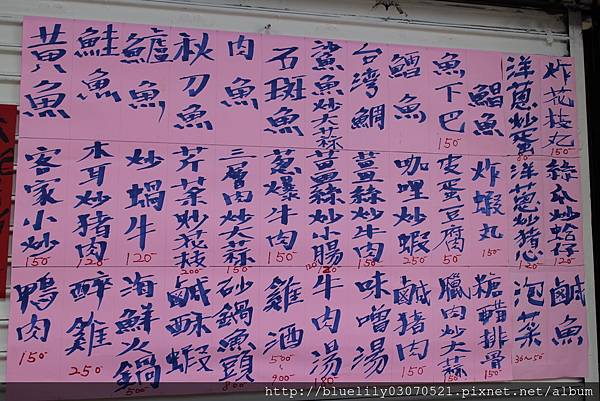 黃魚
鮭魚
鱸魚
秋刀魚
肉魚
石斑魚
鯊魚炒大蒜
台灣鯛
鱈魚
魚下巴 150
鯧魚
洋蔥炒蛋 80
炸花枝丸 150
客家小炒 150
木耳炒豬肉 120
炒蝸牛 120
芹菜炒花枝 200
三層肉炒大蒜 150
蔥爆牛肉 150
薑絲炒小腸 120
薑絲炒牛肉 150
咖哩炒蝦 250
皮蛋豆腐 50
炸蝦丸 150
洋蔥炒豬心 120
絲瓜炒蛤蜊 120
鴨肉 150
醉雞 250
海鮮火鍋 500
鹹酥蝦
砂鍋魚頭 800
雞酒 500~900
牛肉湯 180
味噌湯
鹹豬肉 150
臘肉炒大蒜 150
糖醋排骨 150
泡菜 30~50
鹹魚
http://bluelily03070521.pixnet.net/album